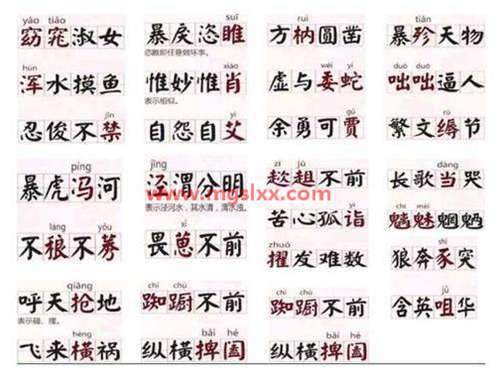 yǎo tiǎo
窈窕淑女
suī
暴戾恣睢
恣睢即任意做坏事。
ruì
方枘圆凿
tiǎn
暴殄天物
hún
浑水摸鱼
xiào
惟妙惟肖
表示相似。
wēi yí
虚与委蛇
duō duō
咄咄逼人
jīn
忍俊不禁
yì
自怨自艾
gǔ
余勇可贾
rù
繁文缛节
píng
暴虎冯河
jīng
泾渭分明
表示泾河水，其水清，渭水浊。
zī jū
趑趄不前
dàng
长歌当哭
www.mgslxx.com
yì
苦心孤诣
chī mèi
魑魅魍魉
láng yǒu
不稂不莠
xǐ
畏葸不前
zhuó
擢发难数
shǐ
狼奔豕突
qiāng
呼天抢地
表示碰、撞。
chí chú
踟蹰不前
chí chú
踟蹰不前
jǔ
含英咀华
hèng
飞来横祸
bǎi hé
纵横捭阖
bǎi hé
纵横捭阖